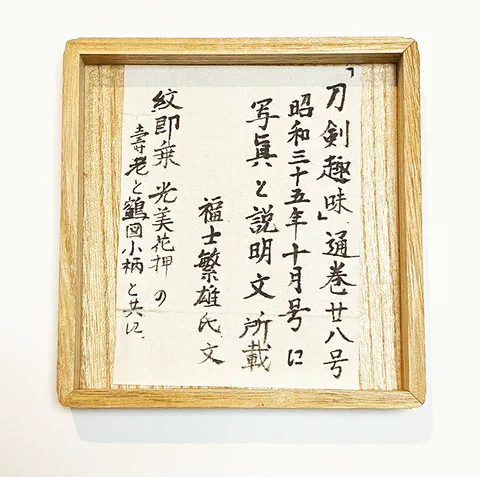 「刀剣趣味」通巻廿八号
昭和三十五年十月号に
写眞と説明文所載
福士繁雄氏文
紋即乗 光美花押の
壽老と鶴図小柄と共に.